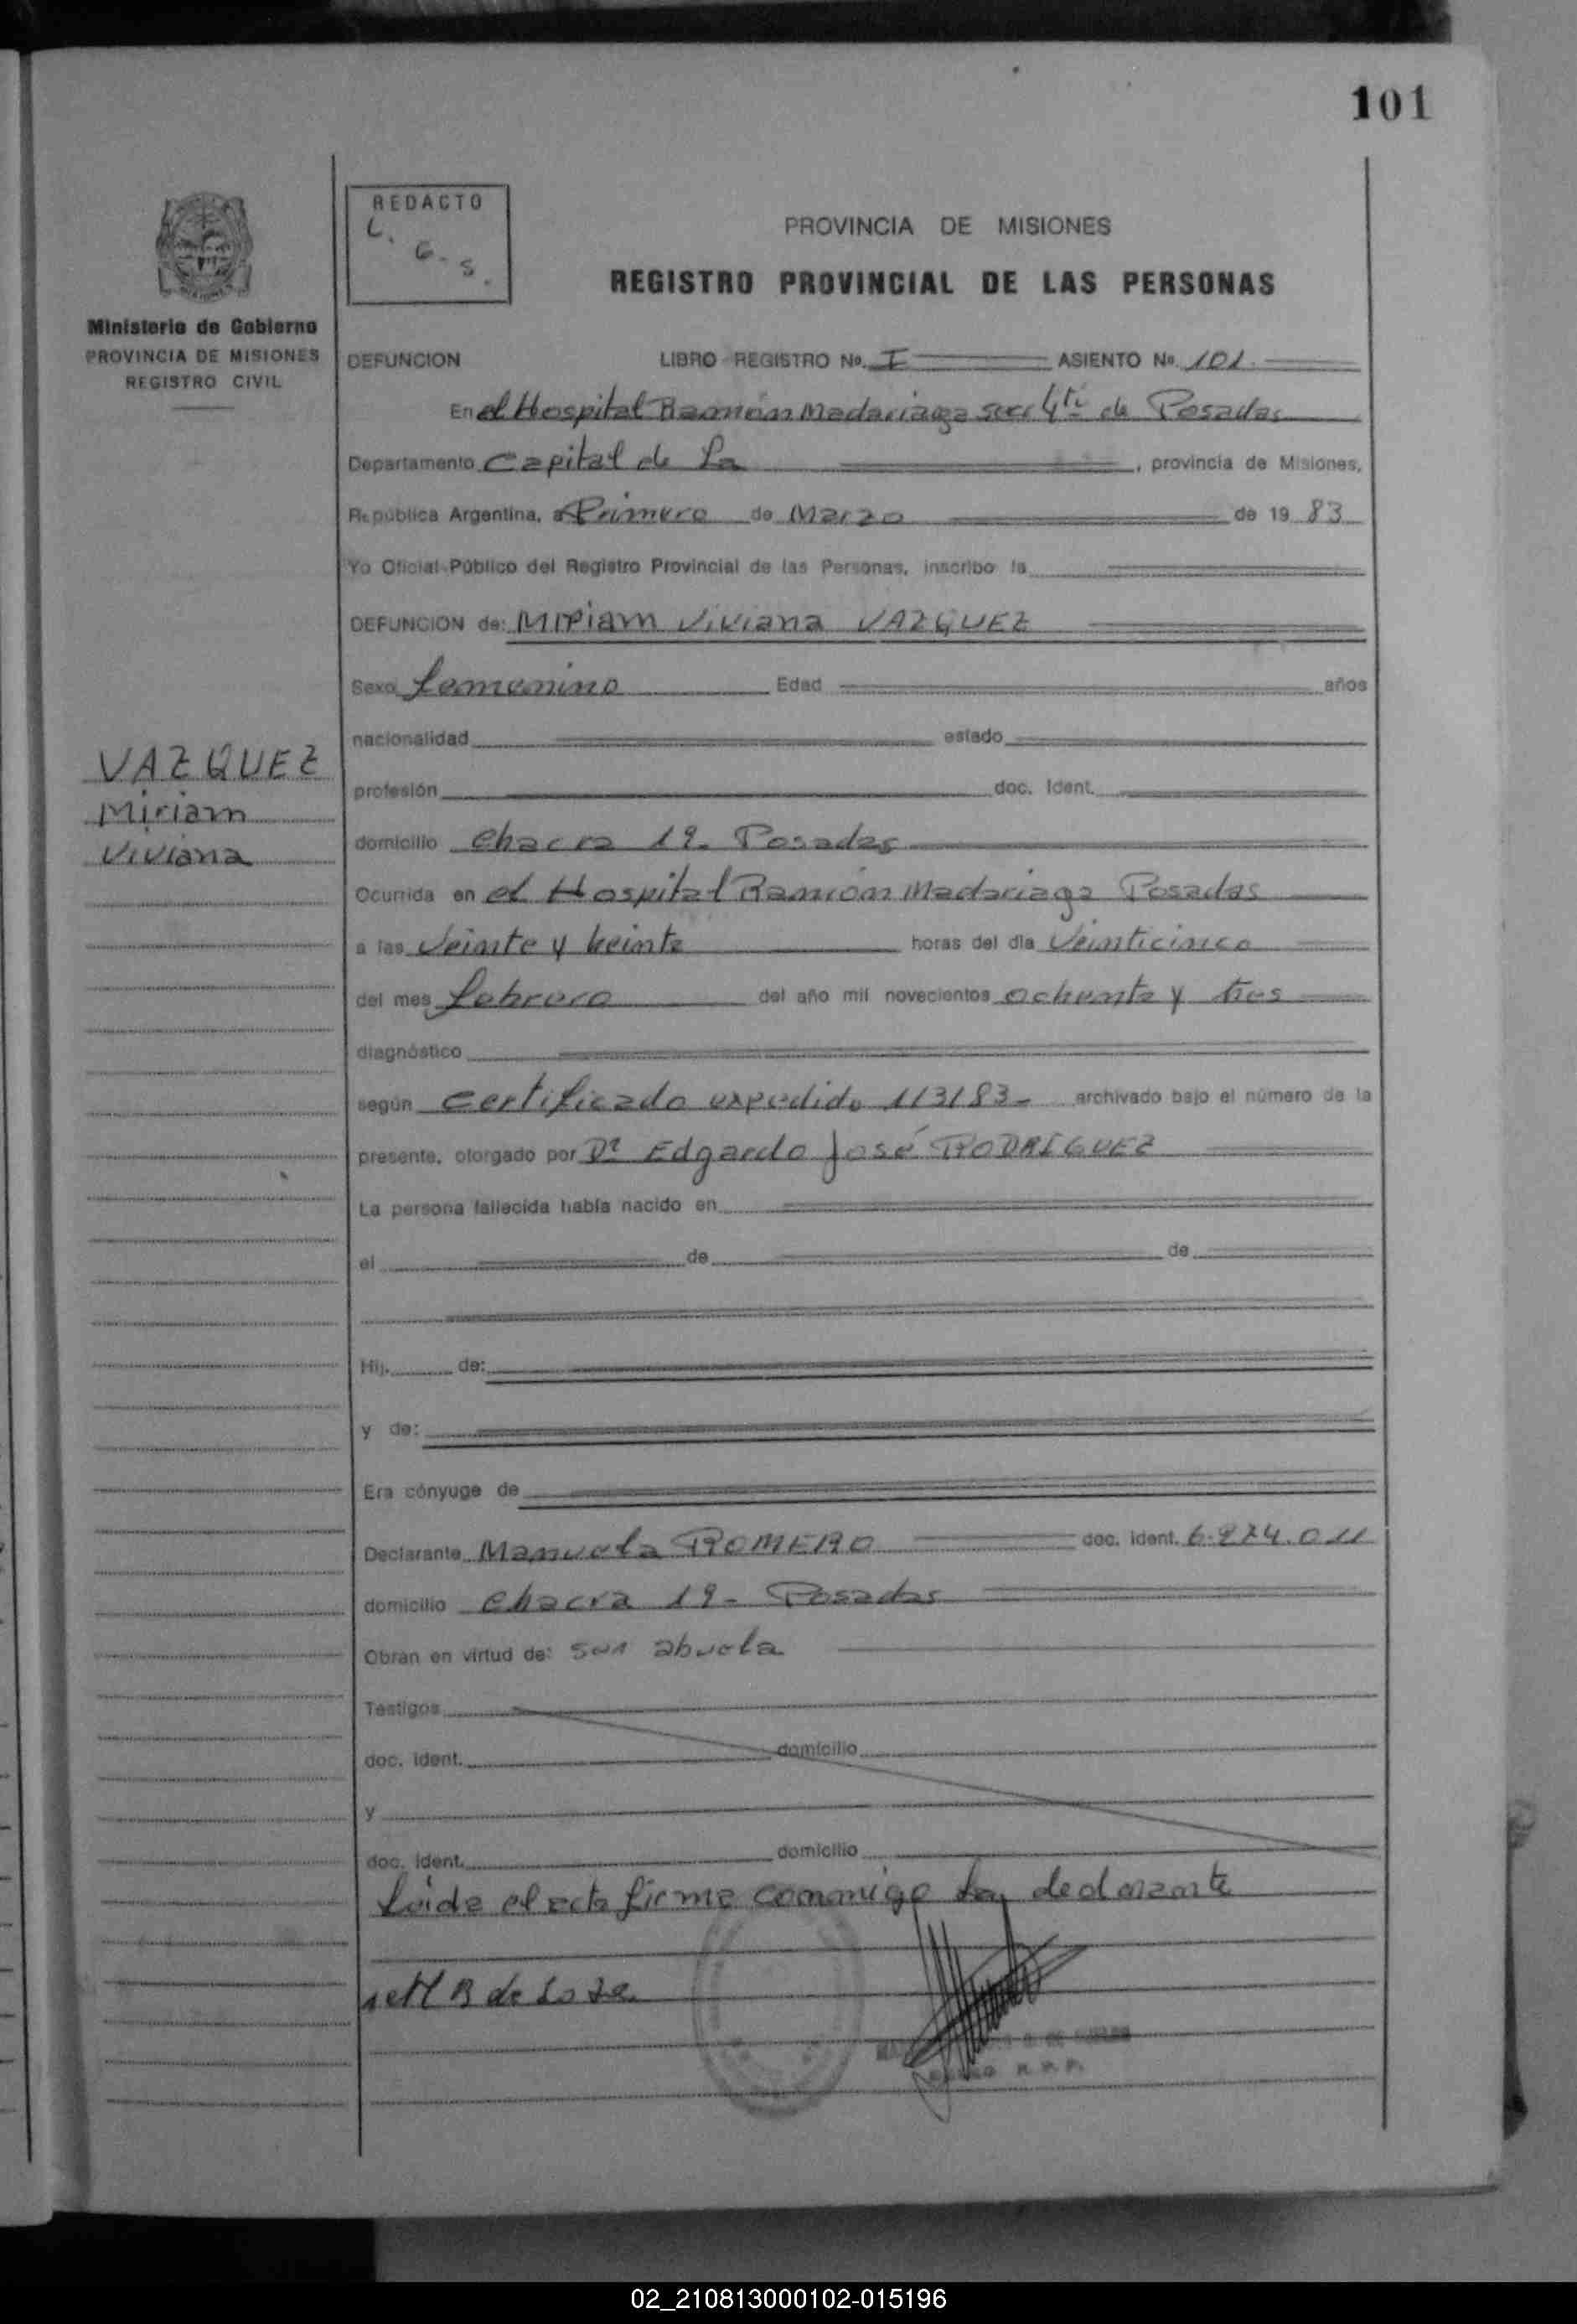 101
REDACTO
L. G. S.
PROVINCIA DE MISIONES
REGISTRO PROVINCIAL DE LAS PERSONAS
Ministerio de Gobierno
PROVINCIA DE MISIONES
REGISTRO CIVIL
VAZQUEZ
Miriam
Viviana
DEFUNCION LIBRO REGISTRO No. I ASIENTO No. 101.
En el Hospital Ramón Madariaga secc 4ta de Posadas
Departamento Capital de La , provincia de Misiones,
República Argentina, a Primero de Marzo de 19 83
Yo Oficial Público del Registro Provincial de las Personas, inscribo la
DEFUNCION de: Miriam Viviana VAZQUEZ
Sexo femenino Edad años
nacionalidad estado
profesión doc. ident.
domicilio Chacra 19- Posadas
Ocurrida en el Hospital Ramón Madariaga Posadas
a las Veinte y horas del día Veinticinco
del mes febrero del año mil novecientos ochenta y tres
diagnóstico
según certificado expedido 113/83- archivado bajo el número de la
presente, otorgado por Dr Edgardo José RODRIGUEZ
La persona fallecida había nacido en
el de de
Hij. de:
y de:
Era cónyuge de
Declarante Manuela ROMERO doc. ident.
domicilio Chacra 19- Posadas
Obran en virtud de: abuela
Testigos
doc. ident. domicilio
y
doc. ident. domicilio
Leida el acta firma conmigo declarante
R. P. P.
02_210813000102-015196